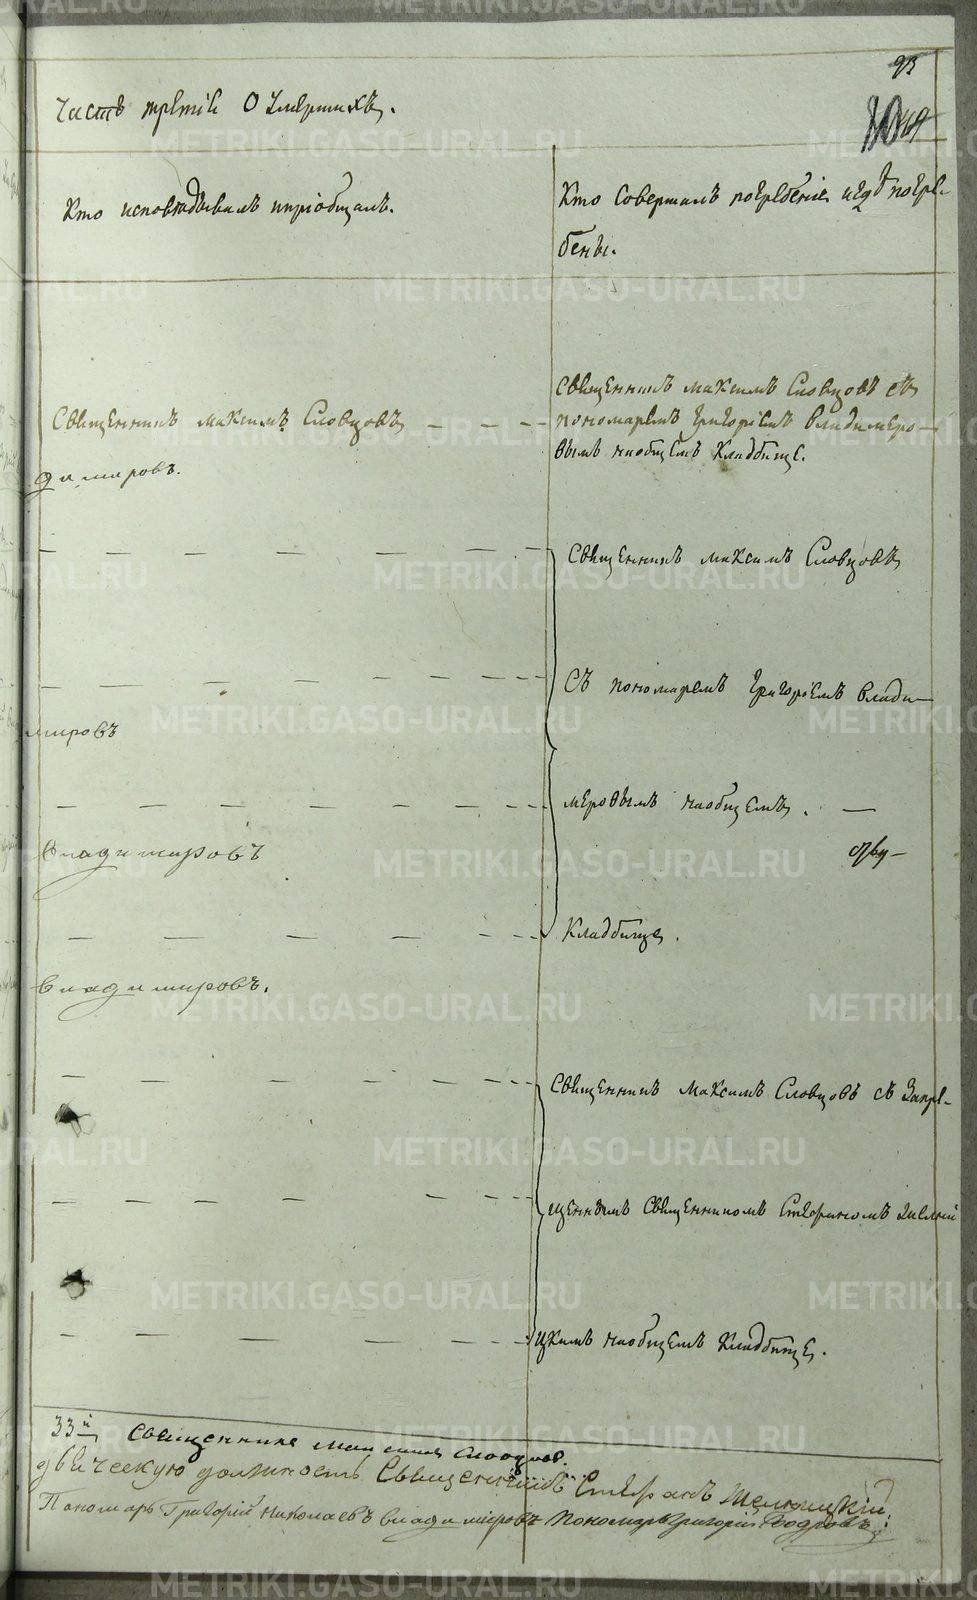 93
Часть третія О умершихъ.
169
Кто исповѣдывалъ и пріобщалъ.
Кто совершалъ погребеніе и гдѣ погре-
бены.
Священникъ Максимъ Словцовъ
Священникъ Максимъ Словцовъ съ
пономаремъ Григоріемъ Владимеро-
вымъ на общемъ кладбище.
димировъ.
Священникъ Максимъ Словцовъ
съ пономаремъ Григоріемъ Влади-
мировъ
меровымъ на общемъ.
Владимировъ
кладбище.
Владимировъ.
Священникъ Максимъ Словцовъ съ запре-
щеннымъ священникомъ Стефаномъ
цкимъ на общемъ кладбище.
33й Священникъ Максимъ Словцовъ.
должность Священникъ Стефанъ
Пономарь Григорій Николаевъ Владимировъ Пономарь Григорій
METRIKI.GASO-URAL.RU